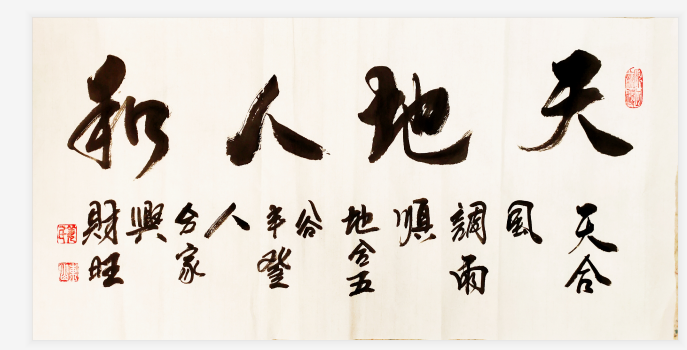 天地人和
天合
風
調雨
順
地合五
谷
丰登
人
合家
興
財旺